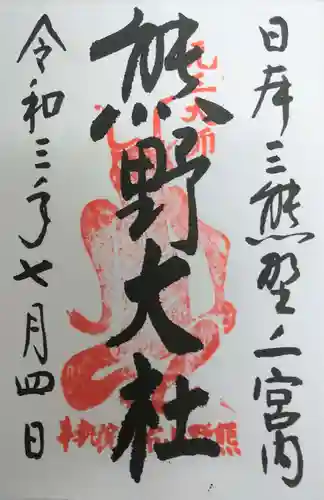 日本三熊野之宮内
熊野大社
令和三年七月四日